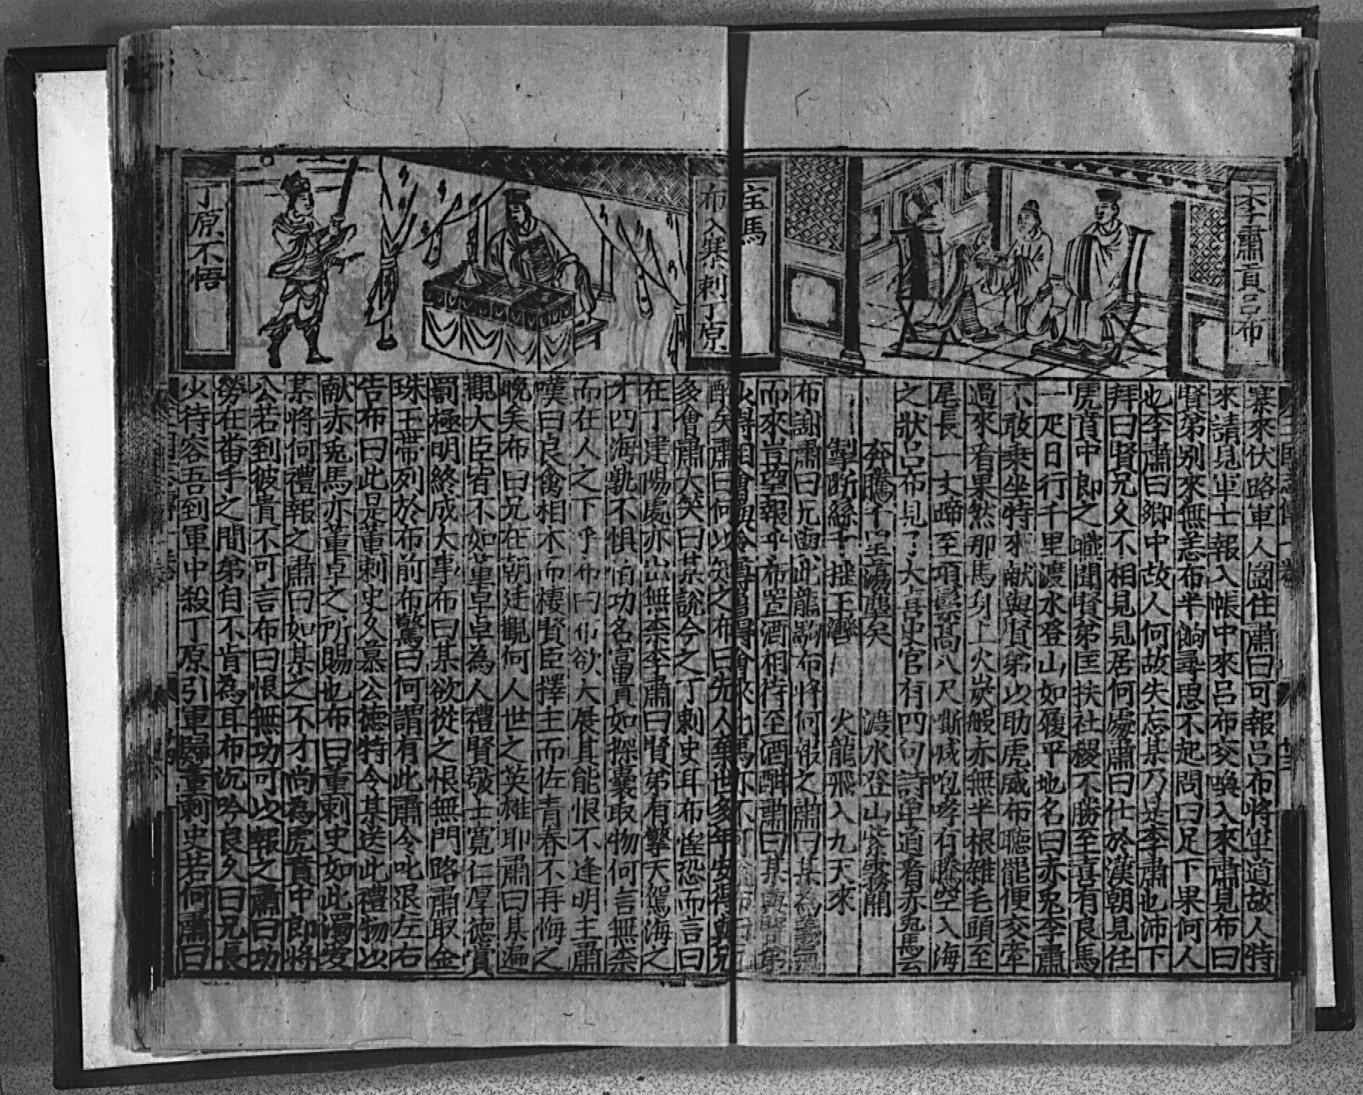 李肅貢呂布
宝馬
寨來伏路軍人圍住肅曰可報呂布將軍道故人特
來請見軍士報入帳中來呂布交喚入來肅見布曰
賢弟別來無恙布半餉尋思不起問曰足下果何人
也李肅曰鄉中故人何故失忘某乃是李肅也沛下
拜曰賢兄久不相見見居何處肅曰仕於漢朝見任
虎賁中郎之職聞賢弟匡扶社稷不勝至喜有良馬
一疋日行千里渡水登山如履平地名曰赤兔李肅
不敢乗坐特來献與賢弟以助虎威布聽罷便交牽
過來看果然那馬身上火炭般赤無半根雜毛頭至
尾長一丈蹄至項鬃高八尺嘶喊咆哮有騰空入海
之狀呂布見了大喜史官有四句詩单道着赤兎馬云
奔騰千里蕩塵矣 渡水登山紫霧開
掣断絲千揺玉轡 火龍飛入九天來
布謝肅曰兄直此龍駒布將何報之肅曰某為義氣
而來豈望報乎布置酒相待至酒酣肅曰某與賢弟
少得相會
布入寨刺丁原
丁原不悟
醉矣肅曰何以知之布曰先人棄世多年安得與兄
多會肅大笑曰某說今之丁刺史耳布惶恐而言曰
在丁建陽處亦出無柰李肅曰賢弟有擎天駕海之
才四海孰不惧怕功名富貴如探囊取物何言無柰
而在人之下乎布曰布欲大展其能恨不逢明主肅
嘆曰良禽相木而棲賢臣擇主而佐青春不再悔之
晚矣布曰兄在朝廷觀何人世之英雄耶肅曰某遍
觀大臣皆不如董卓卓為人禮賢敬士寛仁厚德賞
罰極明終成大事布曰某欲從之恨無門路肅取金
珠玉帶列於布前布驚曰何謂有此肅令叱退左右
告布曰此是董刺史久慕公德特令某送此禮物以
献赤兎馬亦董卓之所賜也布曰董刺史如此濁愛
某將何禮報之肅曰如某之不才尚為虎賁中郎將
公若到彼貴不可言布曰恨無功可以報之肅曰功
勞在畨手之間弟自不肯為耳布沉吟良久曰兄長
少待容吾到軍中殺丁原引軍歸董刺史若何肅曰